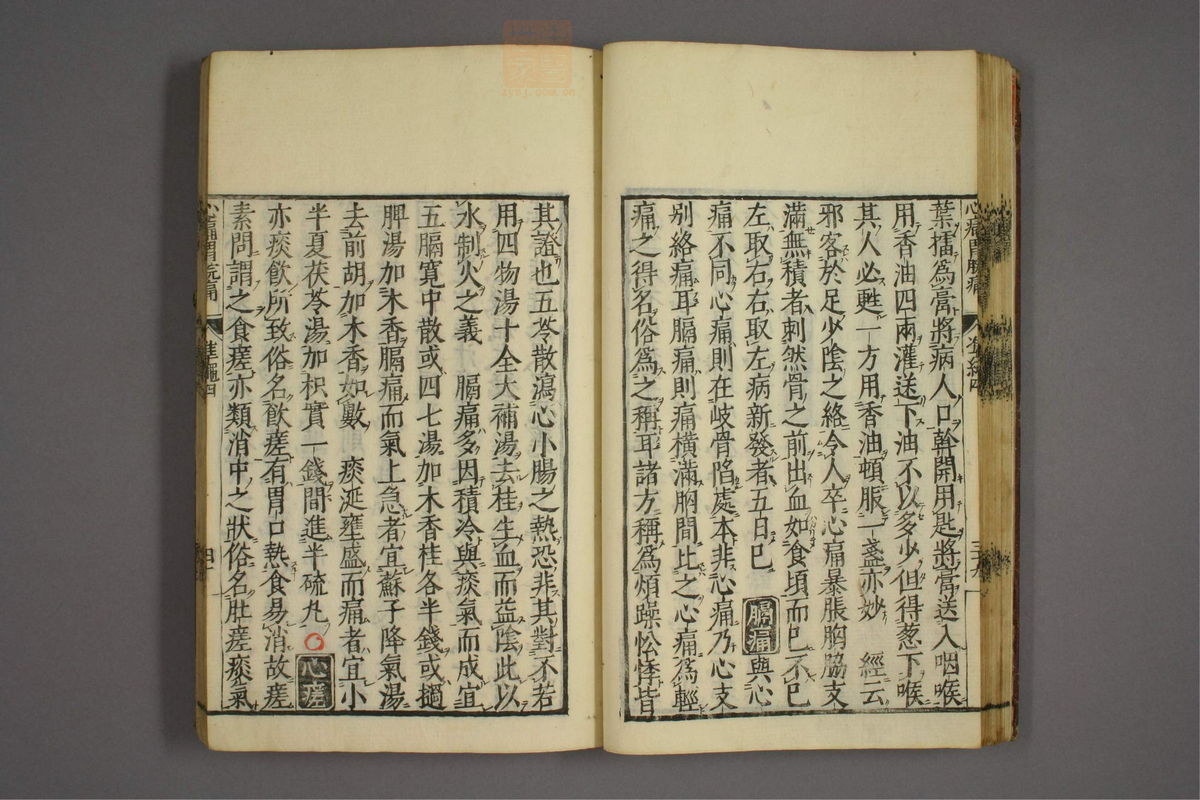 葉擂爲膏將病人口幹開用匙將膏送入咽喉
用香油四兩灌送下油不以多少但得葱下喉
其人必甦一方用香油頓服一盞亦妙　經云
邪客於足少陰之絡令人卒心痛暴脹胸脇支
滿無積者刺然骨之前出血如食頃而已不已
左取右右取左病新發者五日已　膈痛與心
痛不同心痛則在岐骨陷處本非心痛乃心支
別絡痛耳膈痛則痛橫滿胸間比之心痛爲輕
痛之得名俗爲之稱耳諸方稱爲煩躁忪悸皆
其證也五苓散瀉心小腸之熱恐非其對不若
用四物湯十全大補湯去桂生血而益陰此以
水制火之義　膈痛多因積冷與痰氣而成宜
五膈寬中散或四七湯加木香桂各半錢或撾
脾湯加木香膈痛而氣上急者宜蘇子降氣湯
去前胡加木香如數　痰涎壅盛而痛者宜小
半夏茯苓湯加枳實一錢間進半硫丸○心痓
亦痰飲所致俗名飲瘥有胃口熱食易消故瘥
素問謂之食瘥亦類消中之狀俗名肚瘥痰氣
心痛胃脘痛　準繩四